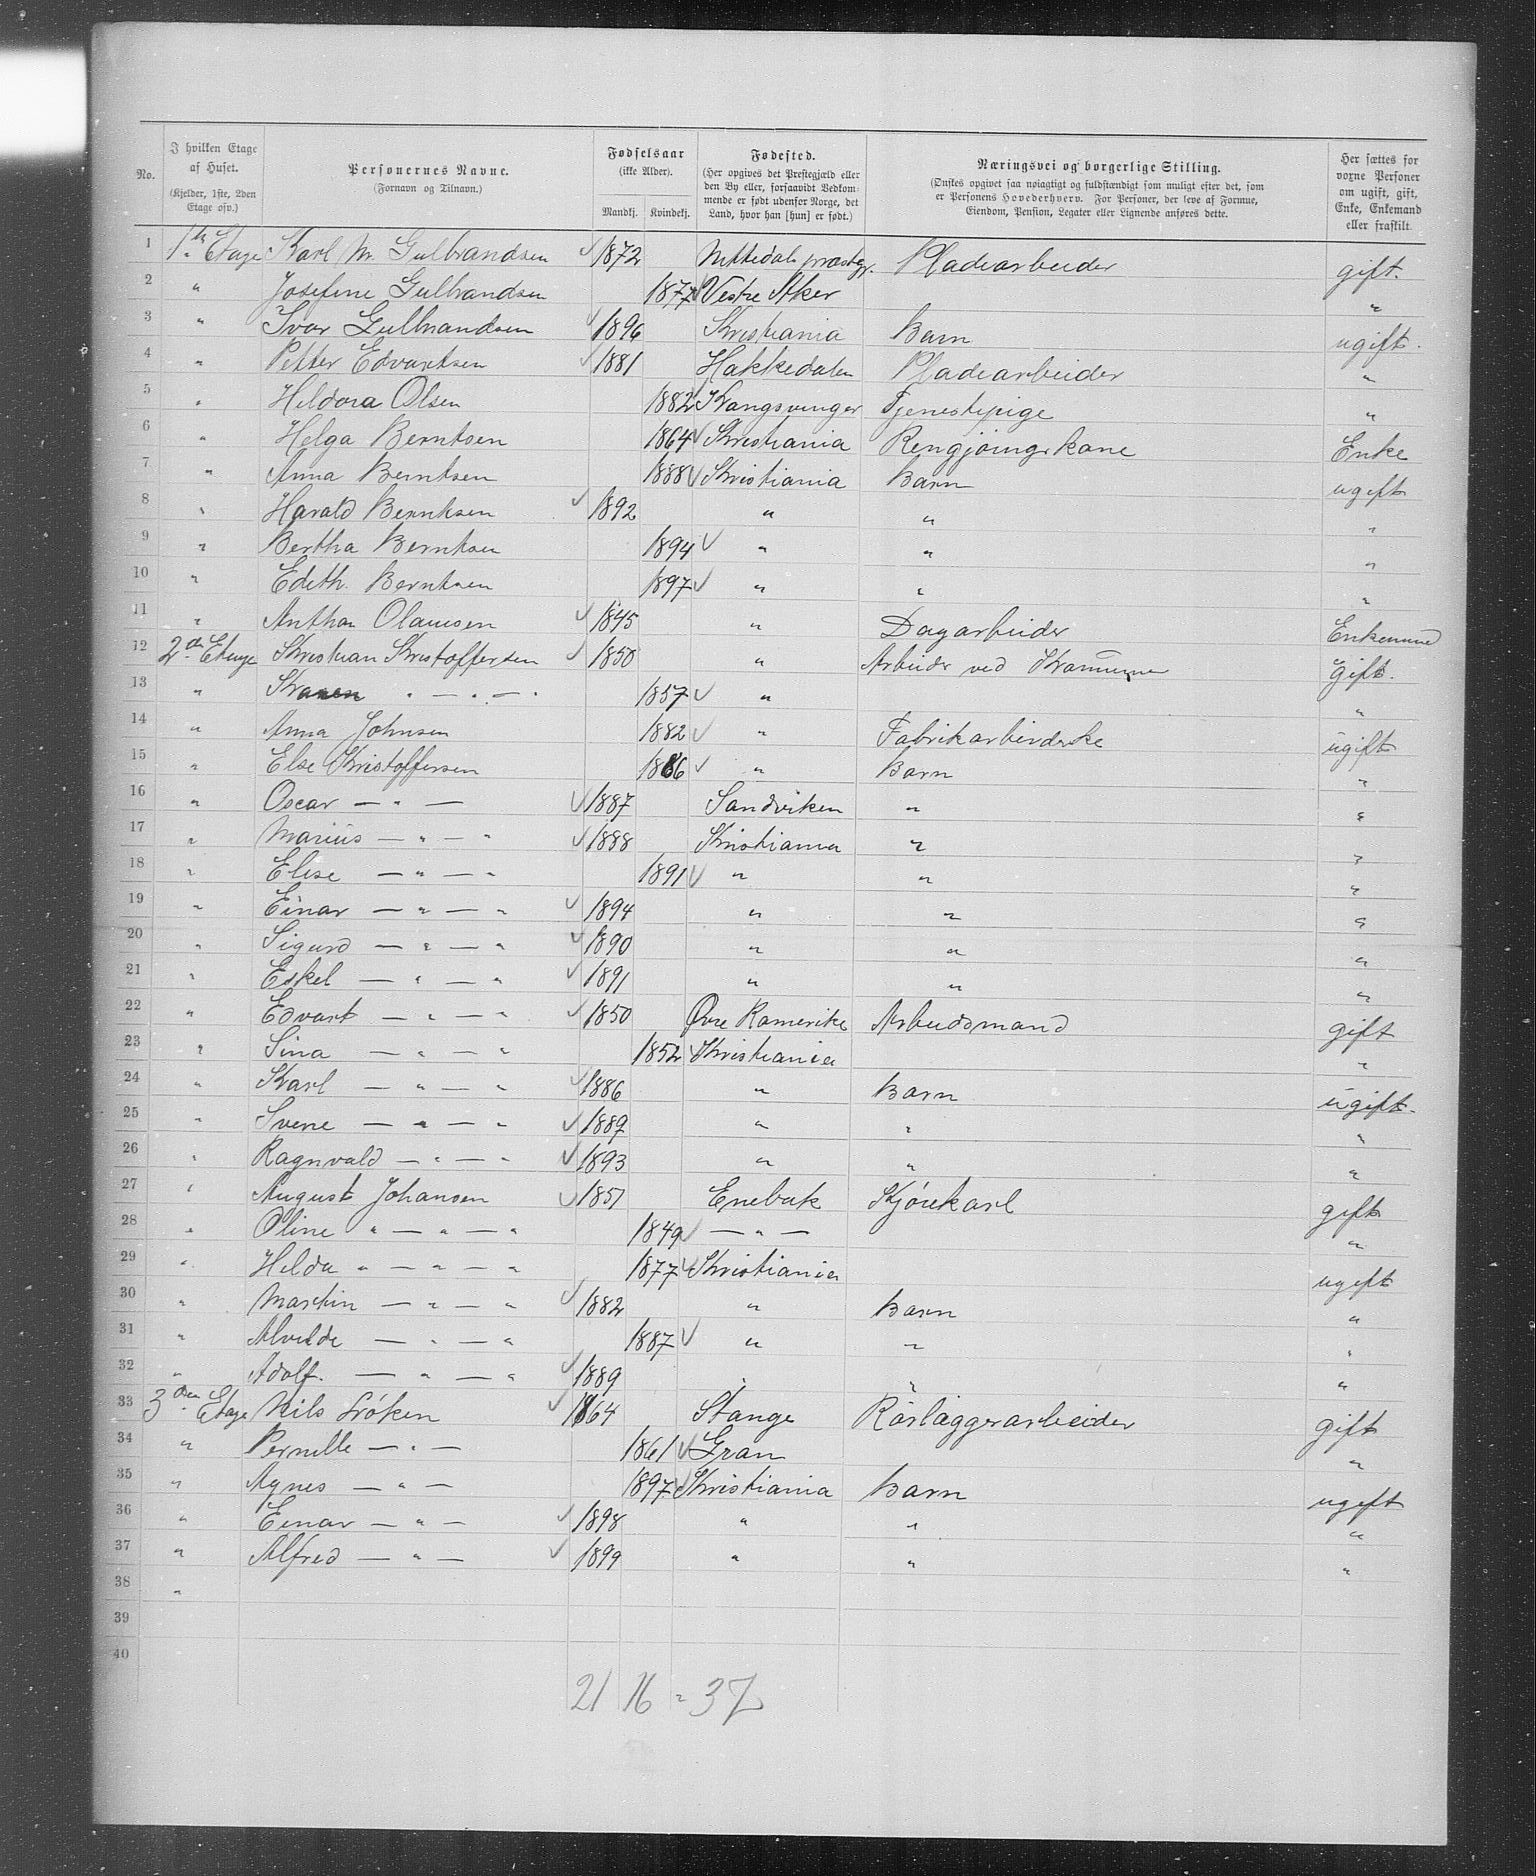 No. | I hvilken Etage af Huset. (Kjelder, 1ste, 2den Etage osv.) | Personernes Navne. (Fornavn og Tilnavn.) | Fødselsaar (ikke Alder). Mandkj. Kvindekj. | Fødested. (Her opgives det Prestegjæld eller den By eller, forsaavidt Vedkommende er født udenfor Norge, det Land, hvor han [hun] er født.) | Næringsvei og borgerlige Stilling. (Ønskes opgivet saa nøiagtigt og fuldstændigt som muligt efter det, som er Personens Hovederhverv. For Personer, der leve af Formue, Eiendom, Pension, Legater eller Lignende anføres dette. | Her sættes for voxne Personer om ugift, gift, Enke, Enkemand eller fraskilt.
1 1ste Etage Karl M. Gulbrandsen ✓ 1872 Nittedals præstgj. Pladearbeider gift.
2 " Josefine Gulbrandsen 1877 ✓ Vestre Aker "
3 " Ivar Gulbrandsen ✓ 1896 Kristiania Barn ugift.
4 " Petter Edvartsen ✓ 1881 Hakkedalen Pladearbeider "
5 " Heldora Olsen 1882 Kongsvinger Tjenestepige "
6 " Helga Berntsen 1864 ✓ Kristiania Rengjøringskone Enke
7 " Anna Berntsen 1888 ✓ Kristiania Barn ugift
8 " Harald Berntsen ✓ 1892 " " "
9 " Bertha Berntsen 1894 ✓ " " "
10 " Edith. Berntsen 1897 ✓ " " "
11 " Anthon Olausen ✓ 1845 " Dagarbeider Enkemand
12 2den Etage Kristian Kristoffersen ✓ 1850 " Arbeider ved Kommunen gift.
13 " Karen " — " — " 1857 ✓ " "
14 " Anna Johnsen 1882 ✓ " Fabrikarbeiderske ugift
15 " Else Kristoffersen 1886 ✓ " Barn "
16 " Oscar — " — ✓ 1887 Sandviken " "
17 " Marius — " — " ✓ 1888 Kristiania " "
18 " Elise — " — " 1891 ✓ " " "
19 " Einar — " — " ✓ 1894 " " "
20 " Sigurd — " — " ✓ 1890 " " "
21 " Eskel — " — " ✓ 1891 " " "
22 " Edvart — " — " ✓ 1850 Øvre Romerike Arbeidsmand gift
23 " Sina — " — " 1852 ✓ Kristiania "
24 " Karl — " — " ✓ 1886 " Barn ugift.
25 " Svene — " — " ✓ 1889 " " "
26 " Ragnvald — " — " ✓ 1893 " " "
27 " August Johansen ✓ 1851 Enebak Kjørekarl gift
28 " Oline " — " — " 1849 ✓ — " — "
29 " Helda " — " — " 1877 ✓ Kristiania ugift
30 " Martin — " — " ✓ 1882 " Barn "
31 " Alvilde — " — " 1887 ✓ " " "
32 " Adolf. — " — " ✓ 1889 " " "
33 3den Etage Nils Løken ✓ 1864 Stange Rørlæggerarbeider gift
34 " Pernille — " — 1861 ✓ Gran "
35 " Agnes — " — 1897 ✓ Kristiania Barn ugift
36 " Einar — " — ✓ 1898 " " "
37 " Alfred — " — ✓ 1899 " " "
38 "
39
40
21 16 = 37